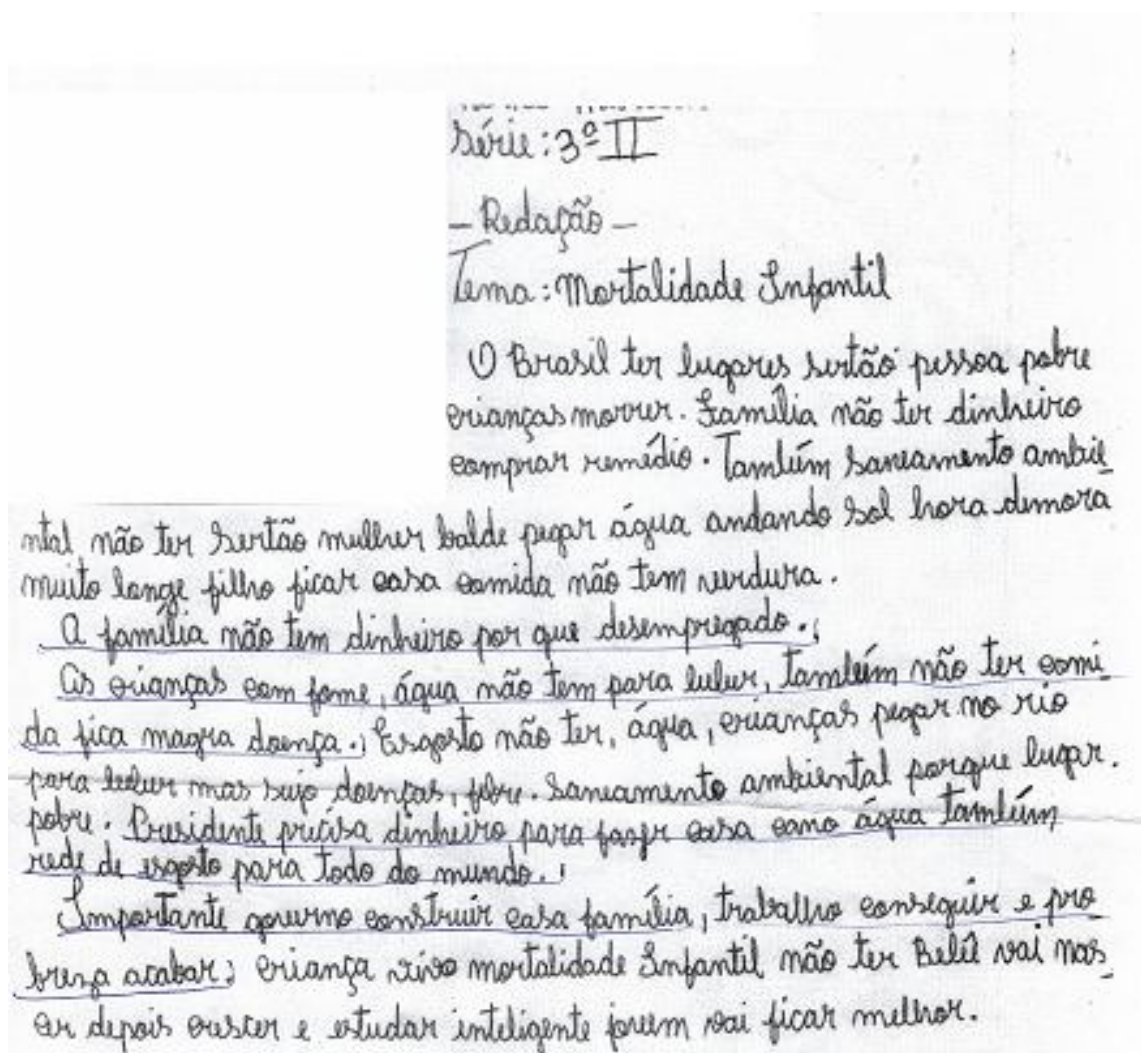 Série: 3º II
- Redação -
Tema: Mortalidade Infantil
O Brasil ter lugares sertão pessoa pobre
crianças morrer. Família não ter dinheiro
comprar remédio. Também saneamento ambie
ntal não ter Sertão mulher balde pegar água andando sol hora demora
muito longe filho ficar casa comida não tem verdura.
A família não tem dinheiro por que desempregado.
As crianças com fome, água não tem para beber, também não ter comi
da fica magra doença. Esgosto não ter, água, crianças pegar no rio
para beber mas sujo doenças, febre. Saneamento ambiental porque lugar.
pobre. Presidente precisa dinheiro para fazer casa cano água também
rede de esgosto para todo do mundo.
Importante governo construir casa família, trabalho conseguir e pro
breza acabar; criança vivo mortalidade Infantil não ter Bebê vai nas
cer depois crescer e estudar inteligente jovem vai ficar melhor.